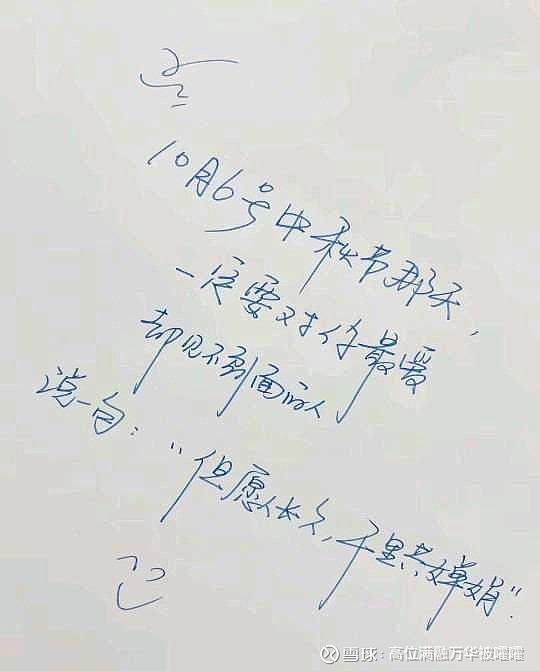 10月6号中秋节那天,
一定要对你最爱
却见不到面的人
说一句:"但愿人长久,千里共婵娟".
雪球:高位满融万华被嚯嚯